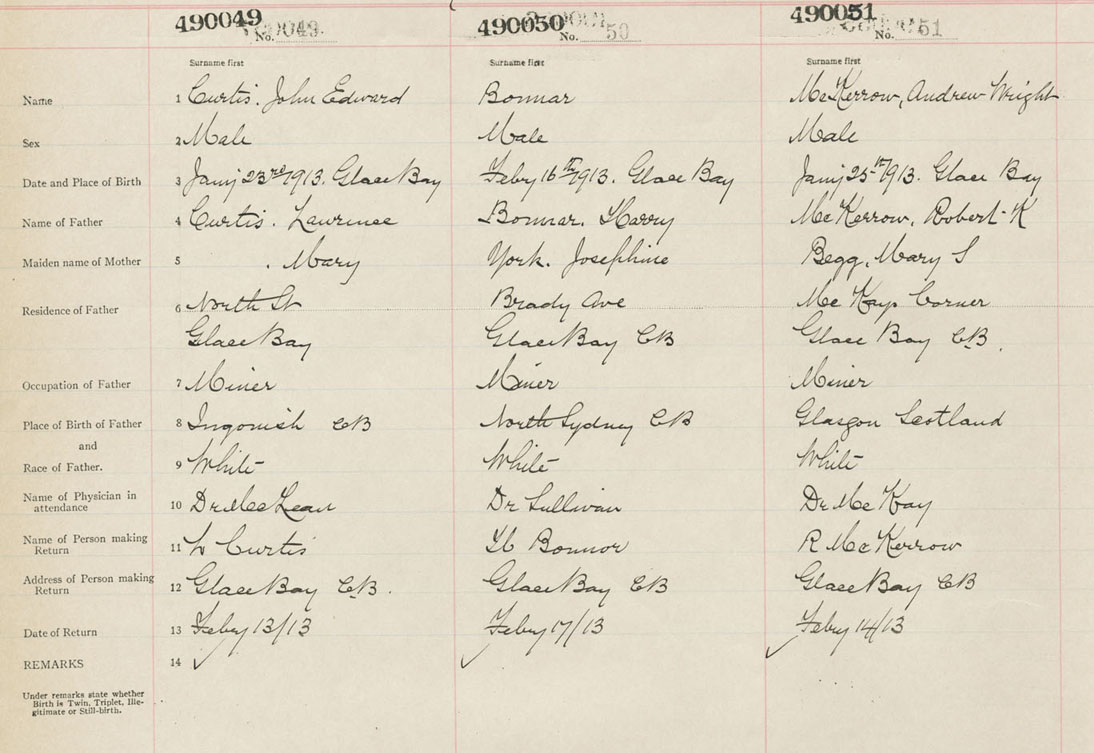 490049 490050 490051
No. 49 No. 50 No. 51
Surname first Surname first Surname first
Name 1 Curtis. John Edward Bonnar McKerrow, Andrew Wright
Sex 2 Male Male Male
Date and Place of Birth 3 Jany 23rd 1913. Glace Bay Feby 16th 1913. Glace Bay Jany 25th 1913. Glace Bay
Name of Father 4 Curtis. Lawrence Bonnar. Harry McKerrow, Robert K
Maiden name of Mother 5 . Mary York. Josephine Begg, Mary S
Residence of Father 6 North St Brady Ave McKays Corner
Glace Bay Glace Bay CB Glace Bay CB.
Occupation of Father 7 Miner Miner Miner
Place of Birth of Father 8 Ingonish CB North Sydney CB Glasgow Scotland
and
Race of Father. 9 White White White
Name of Physician in
attendance 10 Dr McLean Dr Sullivan Dr McKay
Name of Person making
Return 11 L Curtis H Bonnor R McKerrow
Address of Person making
Return 12 Glace Bay CB. Glace Bay CB Glace Bay CB
Date of Return 13 Feby 13/13 Feby 17/13 Feby 14/13
REMARKS 14 ✓ ✓ ✓
Under remarks state whether
Birth is Twin, Triplet, Ille-
gitimate or Still-birth.